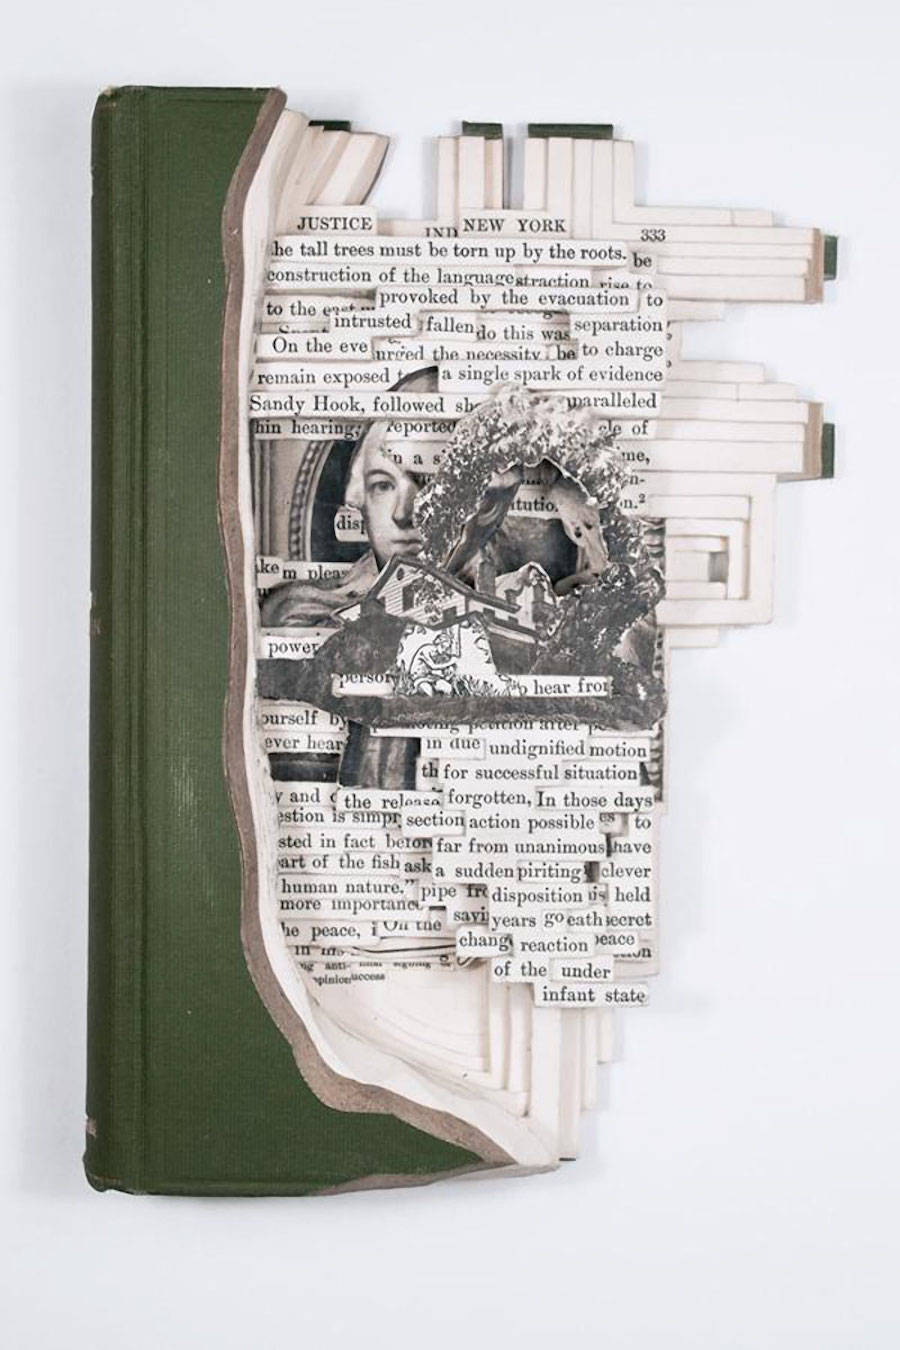 JUSTICE NEW YORK
333
he tall trees must be torn up by the roots. be
construction of the language straction rise to
provoked by the evacuation to
to the
intrusted fallen do this was separation
On the eve urged the necessity be to charge
remain exposed a single spark of evidence
Sandy Hook, followed paralleled
hin hearing; reported cle of
in a me,
n-
itutio n.²
disp
ke m pleas
power
person o hear from
ourself by petition after
ever hear in due undignified motion
th for successful situation
y and the release forgotten, In those days
estion is simpl section action possible us to
sted in fact before far from unanimous have
art of the fish ask a sudden piriting clever
human nature." pipe fro disposition is held
more importance savi years go eath secret
he peace, i On the change reaction peace
in his tion
ng anti-
opinion uccess
of the under
infant state